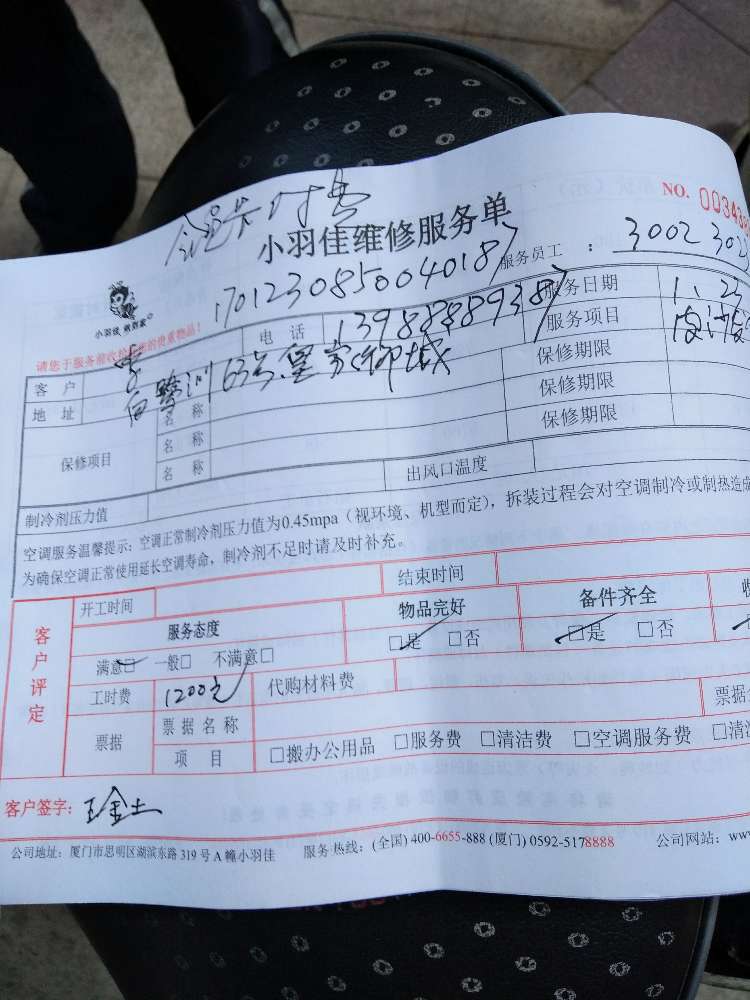 付费
NO. 00343
小羽佳维修服务单
服务员工 : 3002 302
1701230850040187
小羽佳 病到家
请您于服务前收拾好您的贵重物品!
客户 李 电话 13988889387 服务日期 1.22
地址 白鹭洲63号 服务项目
保修项目 名称 保修期限
名称 保修期限
名称 保修期限
制冷剂压力值 出风口温度
空调服务温馨提示:空调正常制冷剂压力值为0.45mpa(视环境、机型而定),拆装过程会对空调制冷或制热造成
为确保空调正常使用延长空调寿命,制冷剂不足时请及时补充。
客户评定
开工时间 结束时间
服务态度 物品完好 备件齐全
满意□ 一般□ 不满意□ □是 □否 □是 □否
工时费 1200元 代购材料费
票据 票据名称 票据
项目 □搬办公用品 □服务费 □清洁费 □空调服务费 □清
客户签字: 王金土
公司地址:厦门市思明区湖滨东路319号A幢小羽佳 服务热线:(全国)400-6655-888(厦门)0592-5178888 公司网站: